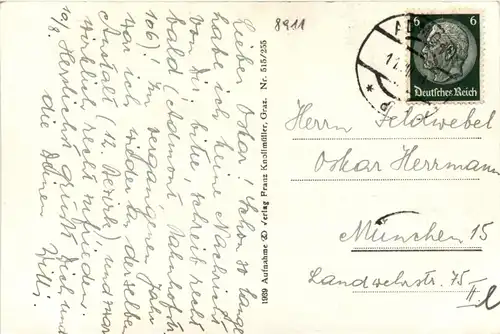 8911
6 6
Deutsches Reich
Lieber Oskar! Schon so lange
habe ich keine Nachricht
von Dir, bitte, schreib recht
bald (Admont Bahnhofstr.
106)! Im vergangenen Jahr
war ich wieder in derselben
Anstalt (12. Bezirk) und war
wirklich recht zufrieden.
10/8. Herzlichst grüßt Dich und
die Deinen Willi.
1939 Aufnahme u. Verlag Franz Knollmüller, Graz. Nr. 515/255
Herrn Feldwebel
Oskar Herrmann
München 15
Landwehrstr. 75
II